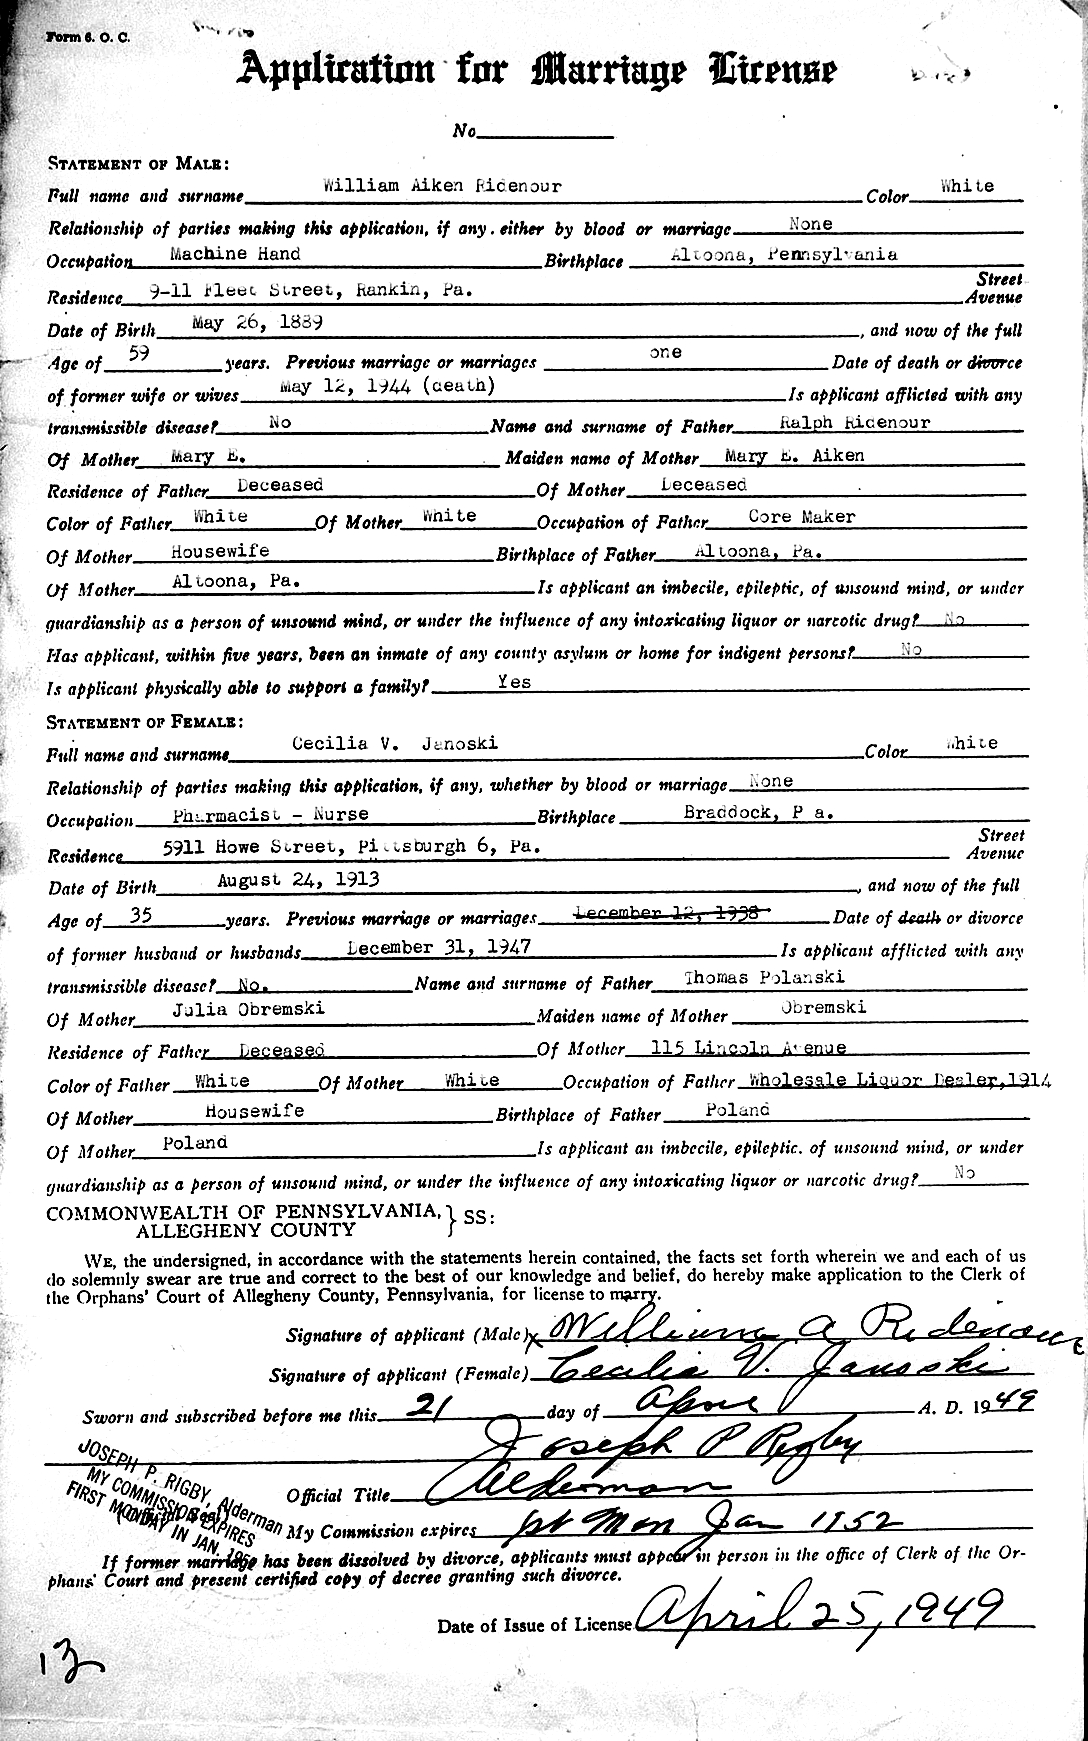 Form 6. O. C.
Application for Marriage License
No
STATEMENT OF MALE:
Full name and surname William Aiken Ridenour Color White
Relationship of parties making this application, if any. either by blood or marriage None
Occupation Machine Hand Birthplace Altoona, Pennsylvania
Residence 9-11 Fleet Street, Rankin, Pa. Street Avenue
Date of Birth May 26, 1889, and now of the full
Age of 59 years. Previous marriage or marriages one Date of death or divorce
of former wife or wives May 12, 1944 (death) Is applicant afflicted with any
transmissible disease? No Name and surname of Father Ralph Ridenour
Of Mother Mary E. Maiden name of Mother Mary E. Aiken
Residence of Father Deceased Of Mother Deceased
Color of Father White Of Mother White Occupation of Father Core Maker
Of Mother Housewife Birthplace of Father Altoona, Pa.
Of Mother Altoona, Pa. Is applicant an imbecile, epileptic, of unsound mind, or under
guardianship as a person of unsound mind, or under the influence of any intoxicating liquor or narcotic drug? No
Has applicant, within five years, been an inmate of any county asylum or home for indigent persons? No
Is applicant physically able to support a family? Yes
STATEMENT OF FEMALE:
Full name and surname Cecilia V. Janoski Color White
Relationship of parties making this application, if any, whether by blood or marriage None
Occupation Pharmacist - Nurse Birthplace Braddock, P a.
Residence 5911 Howe Street, Pittsburgh 6, Pa. Street Avenue
Date of Birth August 24, 1913, and now of the full
Age of 35 years. Previous marriage or marriages December 12, 1938 Date of death or divorce
of former husband or husbands December 31, 1947 Is applicant afflicted with any
transmissible disease? No. Name and surname of Father Thomas Polanski
Of Mother Julia Obremski Maiden name of Mother Obremski
Residence of Father Deceased Of Mother 115 Lincoln Avenue
Color of Father White Of Mother White Occupation of Father Wholesale Liquor Dealer, 1914
Of Mother Housewife Birthplace of Father Poland
Of Mother Poland Is applicant an imbecile, epileptic. of unsound mind, or under
guardianship as a person of unsound mind, or under the influence of any intoxicating liquor or narcotic drug? No
COMMONWEALTH OF PENNSYLVANIA, } SS:
ALLEGHENY COUNTY
WE, the undersigned, in accordance with the statements herein contained, the facts set forth wherein we and each of us
do solemnly swear are true and correct to the best of our knowledge and belief, do hereby make application to the Clerk of
the Orphans' Court of Allegheny County, Pennsylvania, for license to marry.
Signature of applicant (Male) x William A Ridenour
Signature of applicant (Female) Cecilia V. Janoski
Sworn and subscribed before me this 21 day of April A. D. 1949
Joseph P Rigby
Official Title Alderman
My Commission expires 1st Mon Jan 1952
JOSEPH P. RIGBY, Alderman
MY COMMISSION EXPIRES
FIRST MONDAY IN JAN.
If former marriage has been dissolved by divorce, applicants must appear in person in the office of Clerk of the Or-
phans' Court and present certified copy of decree granting such divorce.
Date of Issue of License April 25, 1949